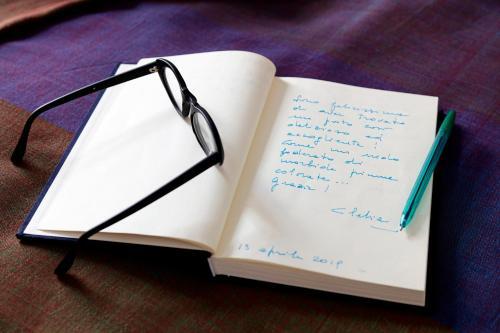 Sono felicissima
di aver trovato
un posto così
delizioso ed
accogliente!
come un nido
foderato di
morbide piume
colorate...
grazie!
Clelia
13 aprile 2019